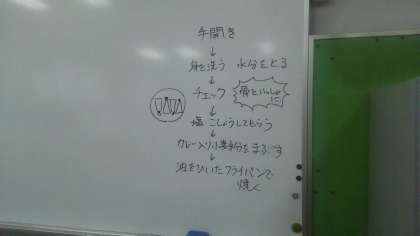 手開き
↓
身を洗う 水分をとる
↓
チェック 骨といっしょに
↓
塩こしょうしてもらう
↓
カレー入り小麦粉をまぶす
↓
油をひいたフライパンで
焼く